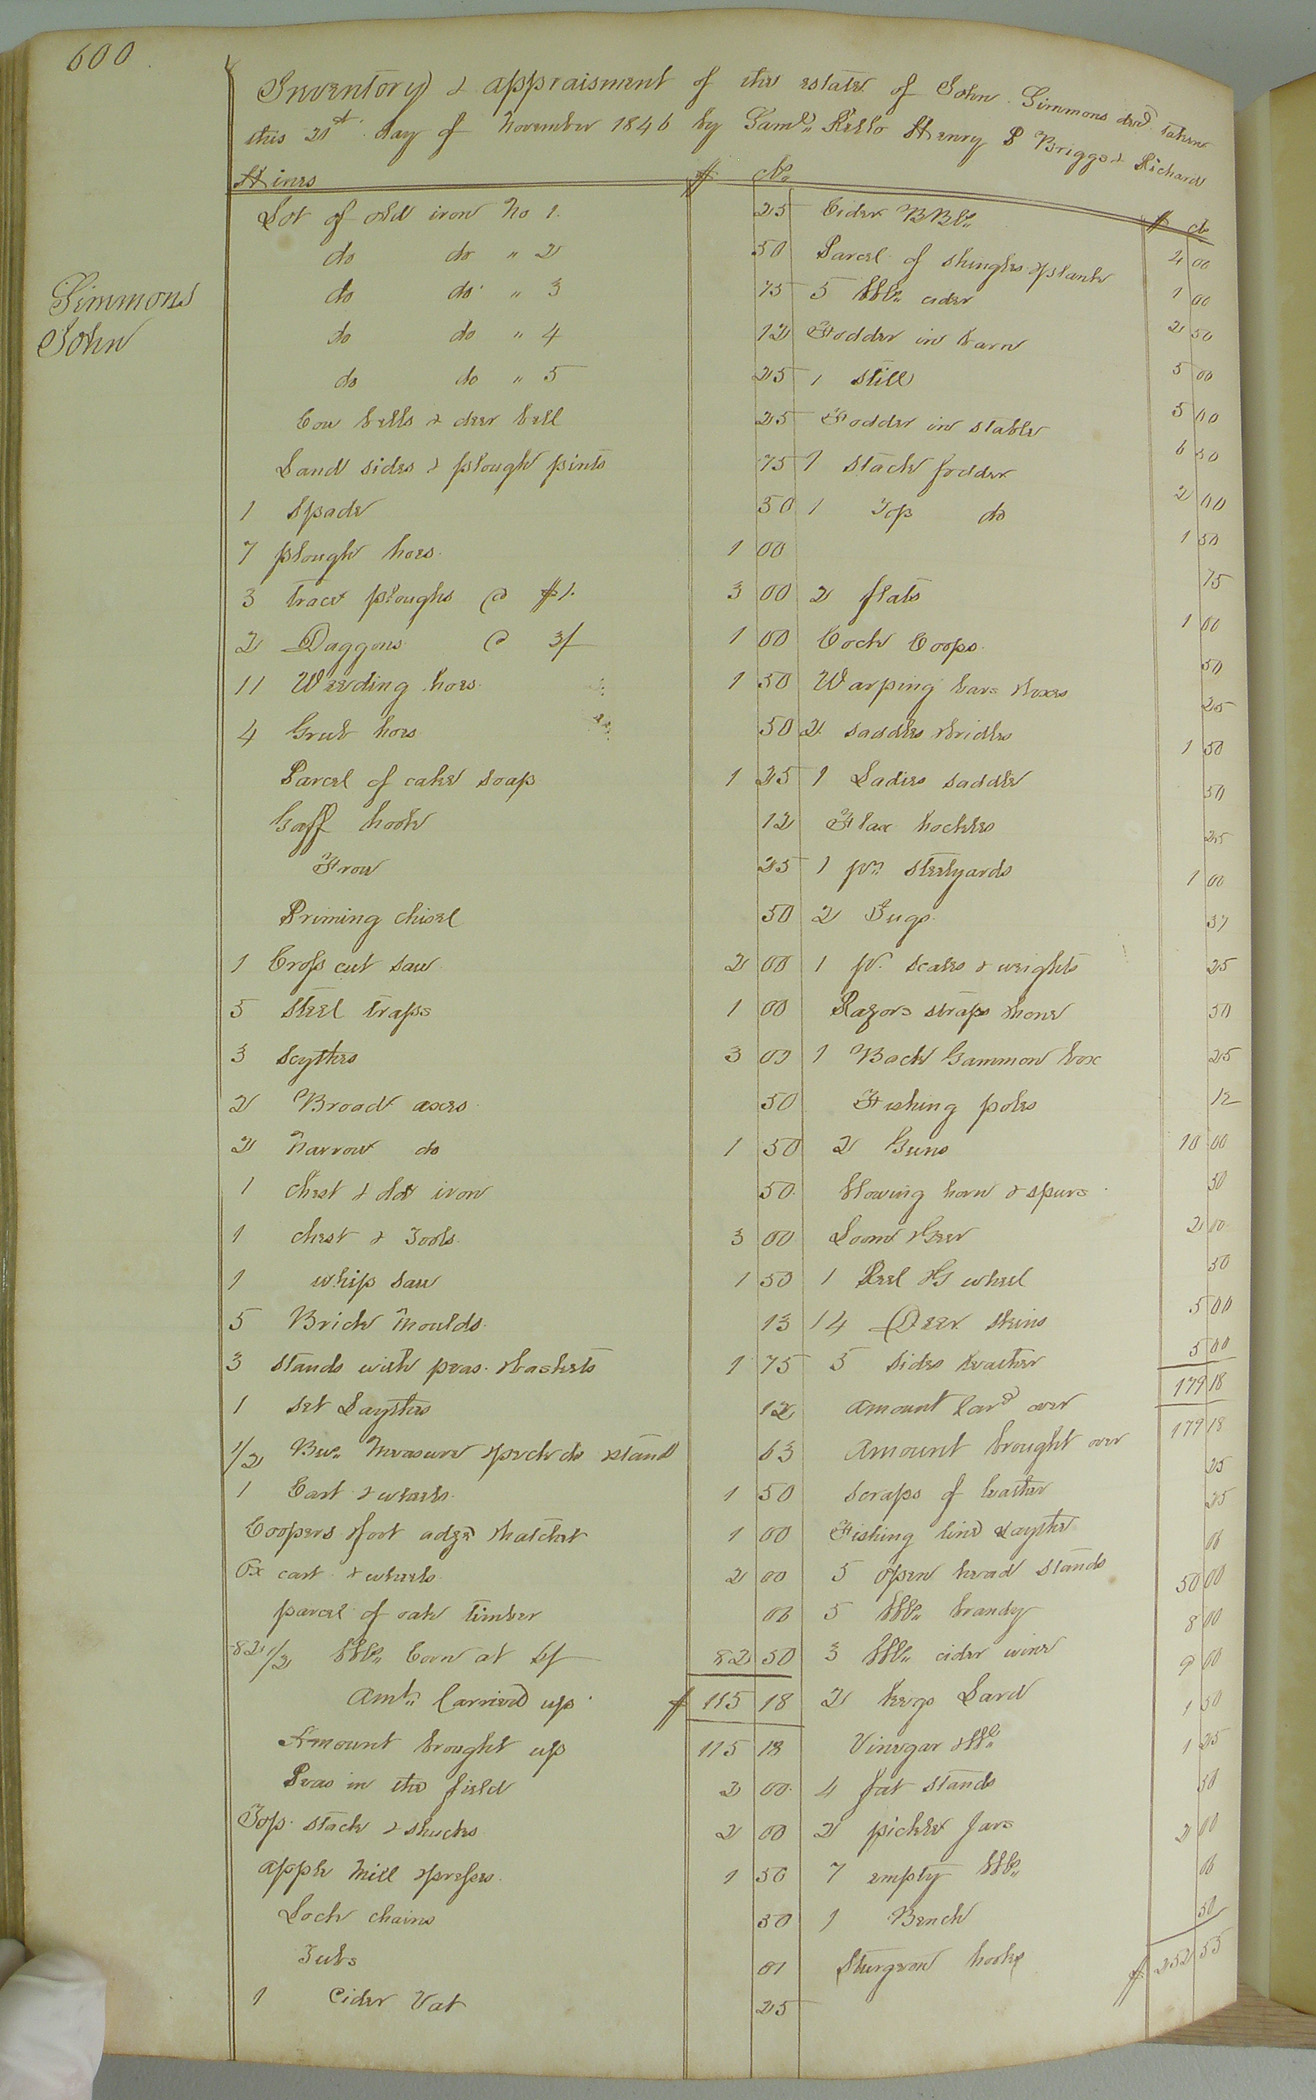 600
Inventory & appraisment of the estate of John Simmons decd taken
this 21st day of November 1846 by Saml. Kello Henry P Briggs & Richard
Hines $ cts
Simmons
John
Lot of old iron No 1. 25
do do " 2 50
do do " 3 75
do do " 4 12
do do " 5 25
Cow bells & deer bell 25
Land sides & plough pints 75
1 Spade 50
7 plough hoes 1 00
3 trace ploughs @ $1. 3 00
2 Daggons @ 3/ 1 00
11 Weeding hoes 1 50
4 Grub hoes 50
Parcel of cake soap 1 25
Gaff hook 12
Frow 25
Priming chisel 50
1 Cross cut saw 2 00
5 Steel traps 1 00
3 Scythes 3 00
2 Broad axes 50
2 Narrow do 1 50
1 chest & old iron 50
1 chest & Tools 3 00
1 whip saw 1 50
5 Brick Moulds 13
3 stands with peas & baskets 1 75
1 set Laythes 12
1/2 Bu. Measure & peck do & stand 63
1 Cart & wheels 1 50
Coopers & foot adze & hatchet 1 00
Ox cart & wheels 2 00
parcel of oak timber 06
82 1/2 bbls. Corn at 6/ 82 50
Amt. Carried up $ 115 18
Amount brought up 115 18
Peas in the field 2 00
Top stack & shucks 2 00
apple Mill & press 1 50
Lock chains 50
Tubs 01
1 Cider Vat 25
$ cts
Cider BBls. 2 00
Parcel of shingles & plank 1 00
5 bbls. cider 2 50
Fodder in barn 5 00
1 still 5 00
Fodder in stable 6 50
1 stack fodder 2 00
1 Top do 1 50
75
2 flats 1 00
Cock Coops 50
Warping bars & boxes 25
2 saddles & bridles 1 50
1 Ladies saddle 50
Flax hockles 25
1 pr. steelyards 1 00
2 Jugs 37
1 pr. scales & weights 25
Razors strap & hone 50
1 Back Gammon box 25
Fishing poles 12
2 Guns 10 00
blowing horn & spurs 50
Loom & Geer 2 00
1 Reel & G wheel 50
14 Deer skins 5 00
5 sides leather 5 00
179 18
Amount Card over 179 18
Amount brought over
scraps of leather 25
Fishing line & laythe 25
5 open head stands 06
5 bbls. brandy 50 00
3 bbls. cider wine 8 00
2 kegs Lard 9 00
Vinegar & bbl. 1 50
4 fat stands 1 25
2 pickle Jars 50
7 empty bbls. 2 00
1 Bench 06
Sturgeon hooks 50
$ 252 55